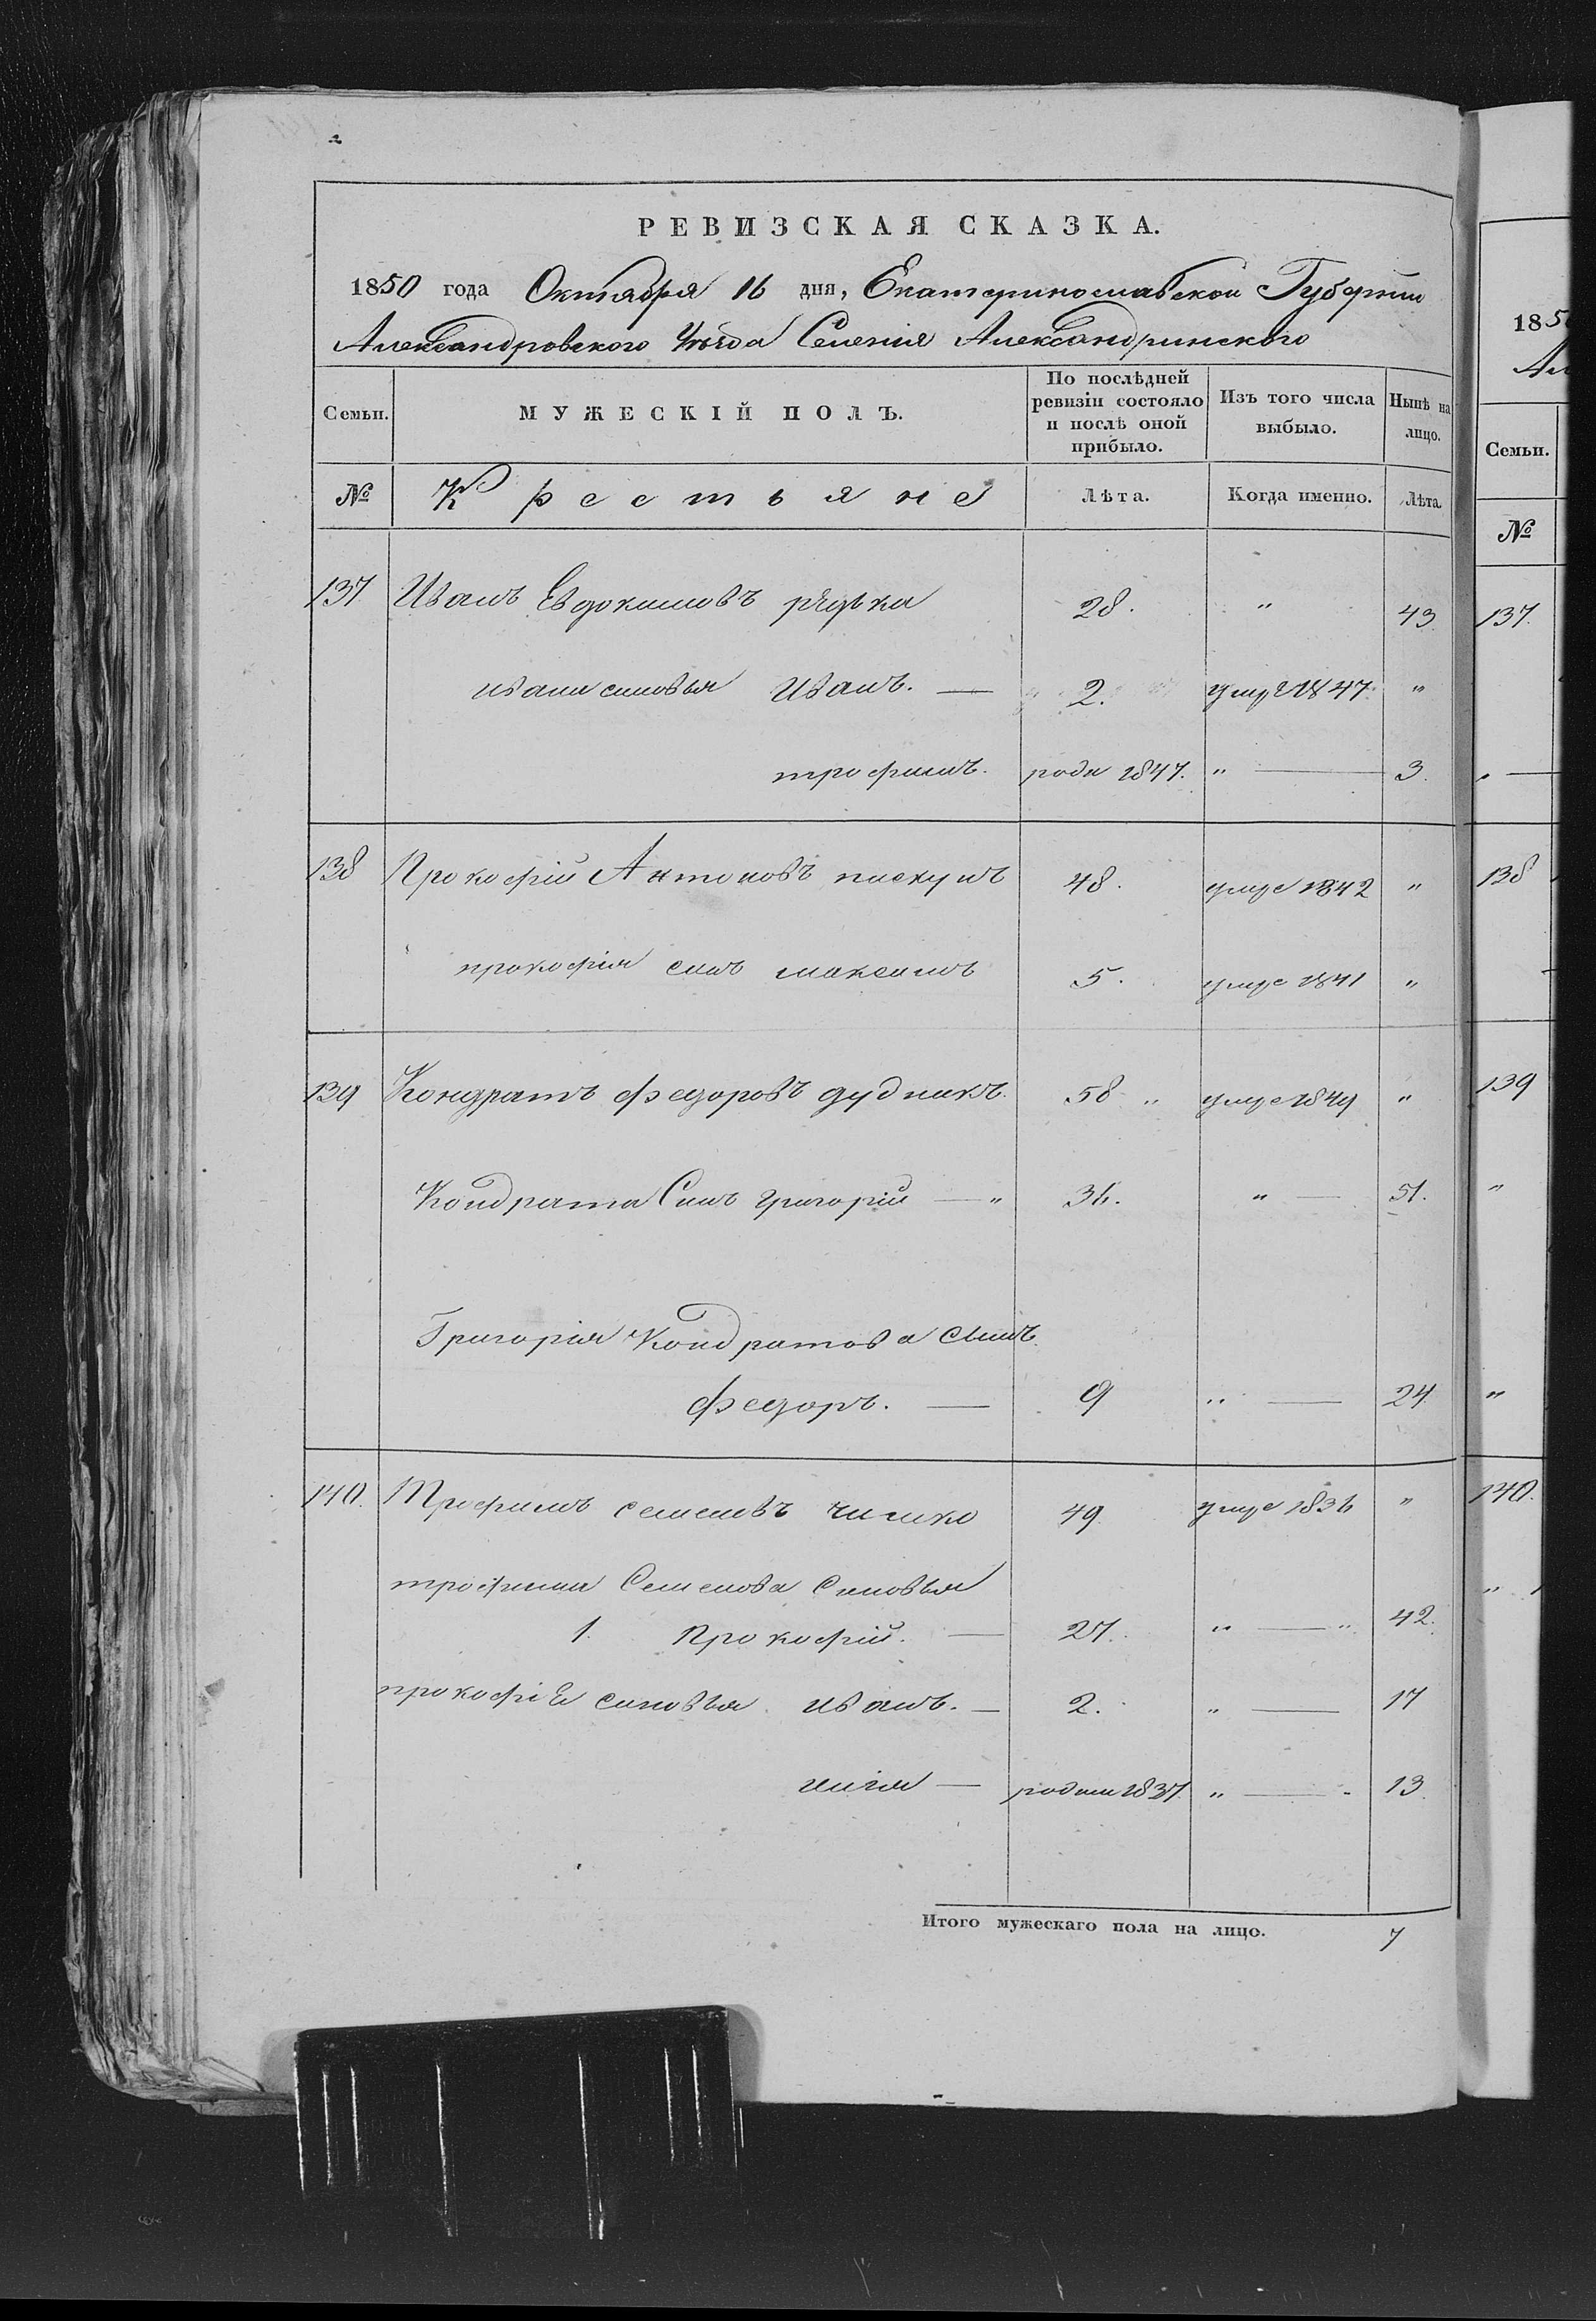 РЕВИЗСКАЯ СКАЗКА.
1850 года Октября 16 дня, Екатеринославской Губернии
Александровского Уезда Селения Александринского
Семьи. МУЖЕСКІЙ ПОЛЪ. По послѣдней ревизіи состояло и послѣ оной прибыло. Изъ того числа выбыло. Нынѣ на лицо.
№ Крестьяне Лѣта. Когда именно. Лѣта.
137 Иванъ Евдокимовъ рядька 28. " 43
ивана синовья Иванъ. — 2. умре 1847 "
трофимъ. рода 1847. " — 3.
138 Прокофій Антоновъ пискунъ 48. умре 1842 "
прокофія синъ максимъ 5. умре 1841 "
139 Кондратъ федоровъ дудникъ. 58 " умре 1849 "
Кондрата Синъ григорій — " 36. " — 51.
Григорія Кондратова синъ
федоръ. — 9 " — 24
140. Трофимъ семеновъ 49 умре 1836 "
трофима Семенова Синовья
1. Прокофій. — 27. " — " 42.
прокофія синовья иванъ. — 2. " — 17
илія — родил 1837. " — 13
Итого мужескаго пола на лицо. 7
185
Ал
Семьи.
№
137.
138
139
140.